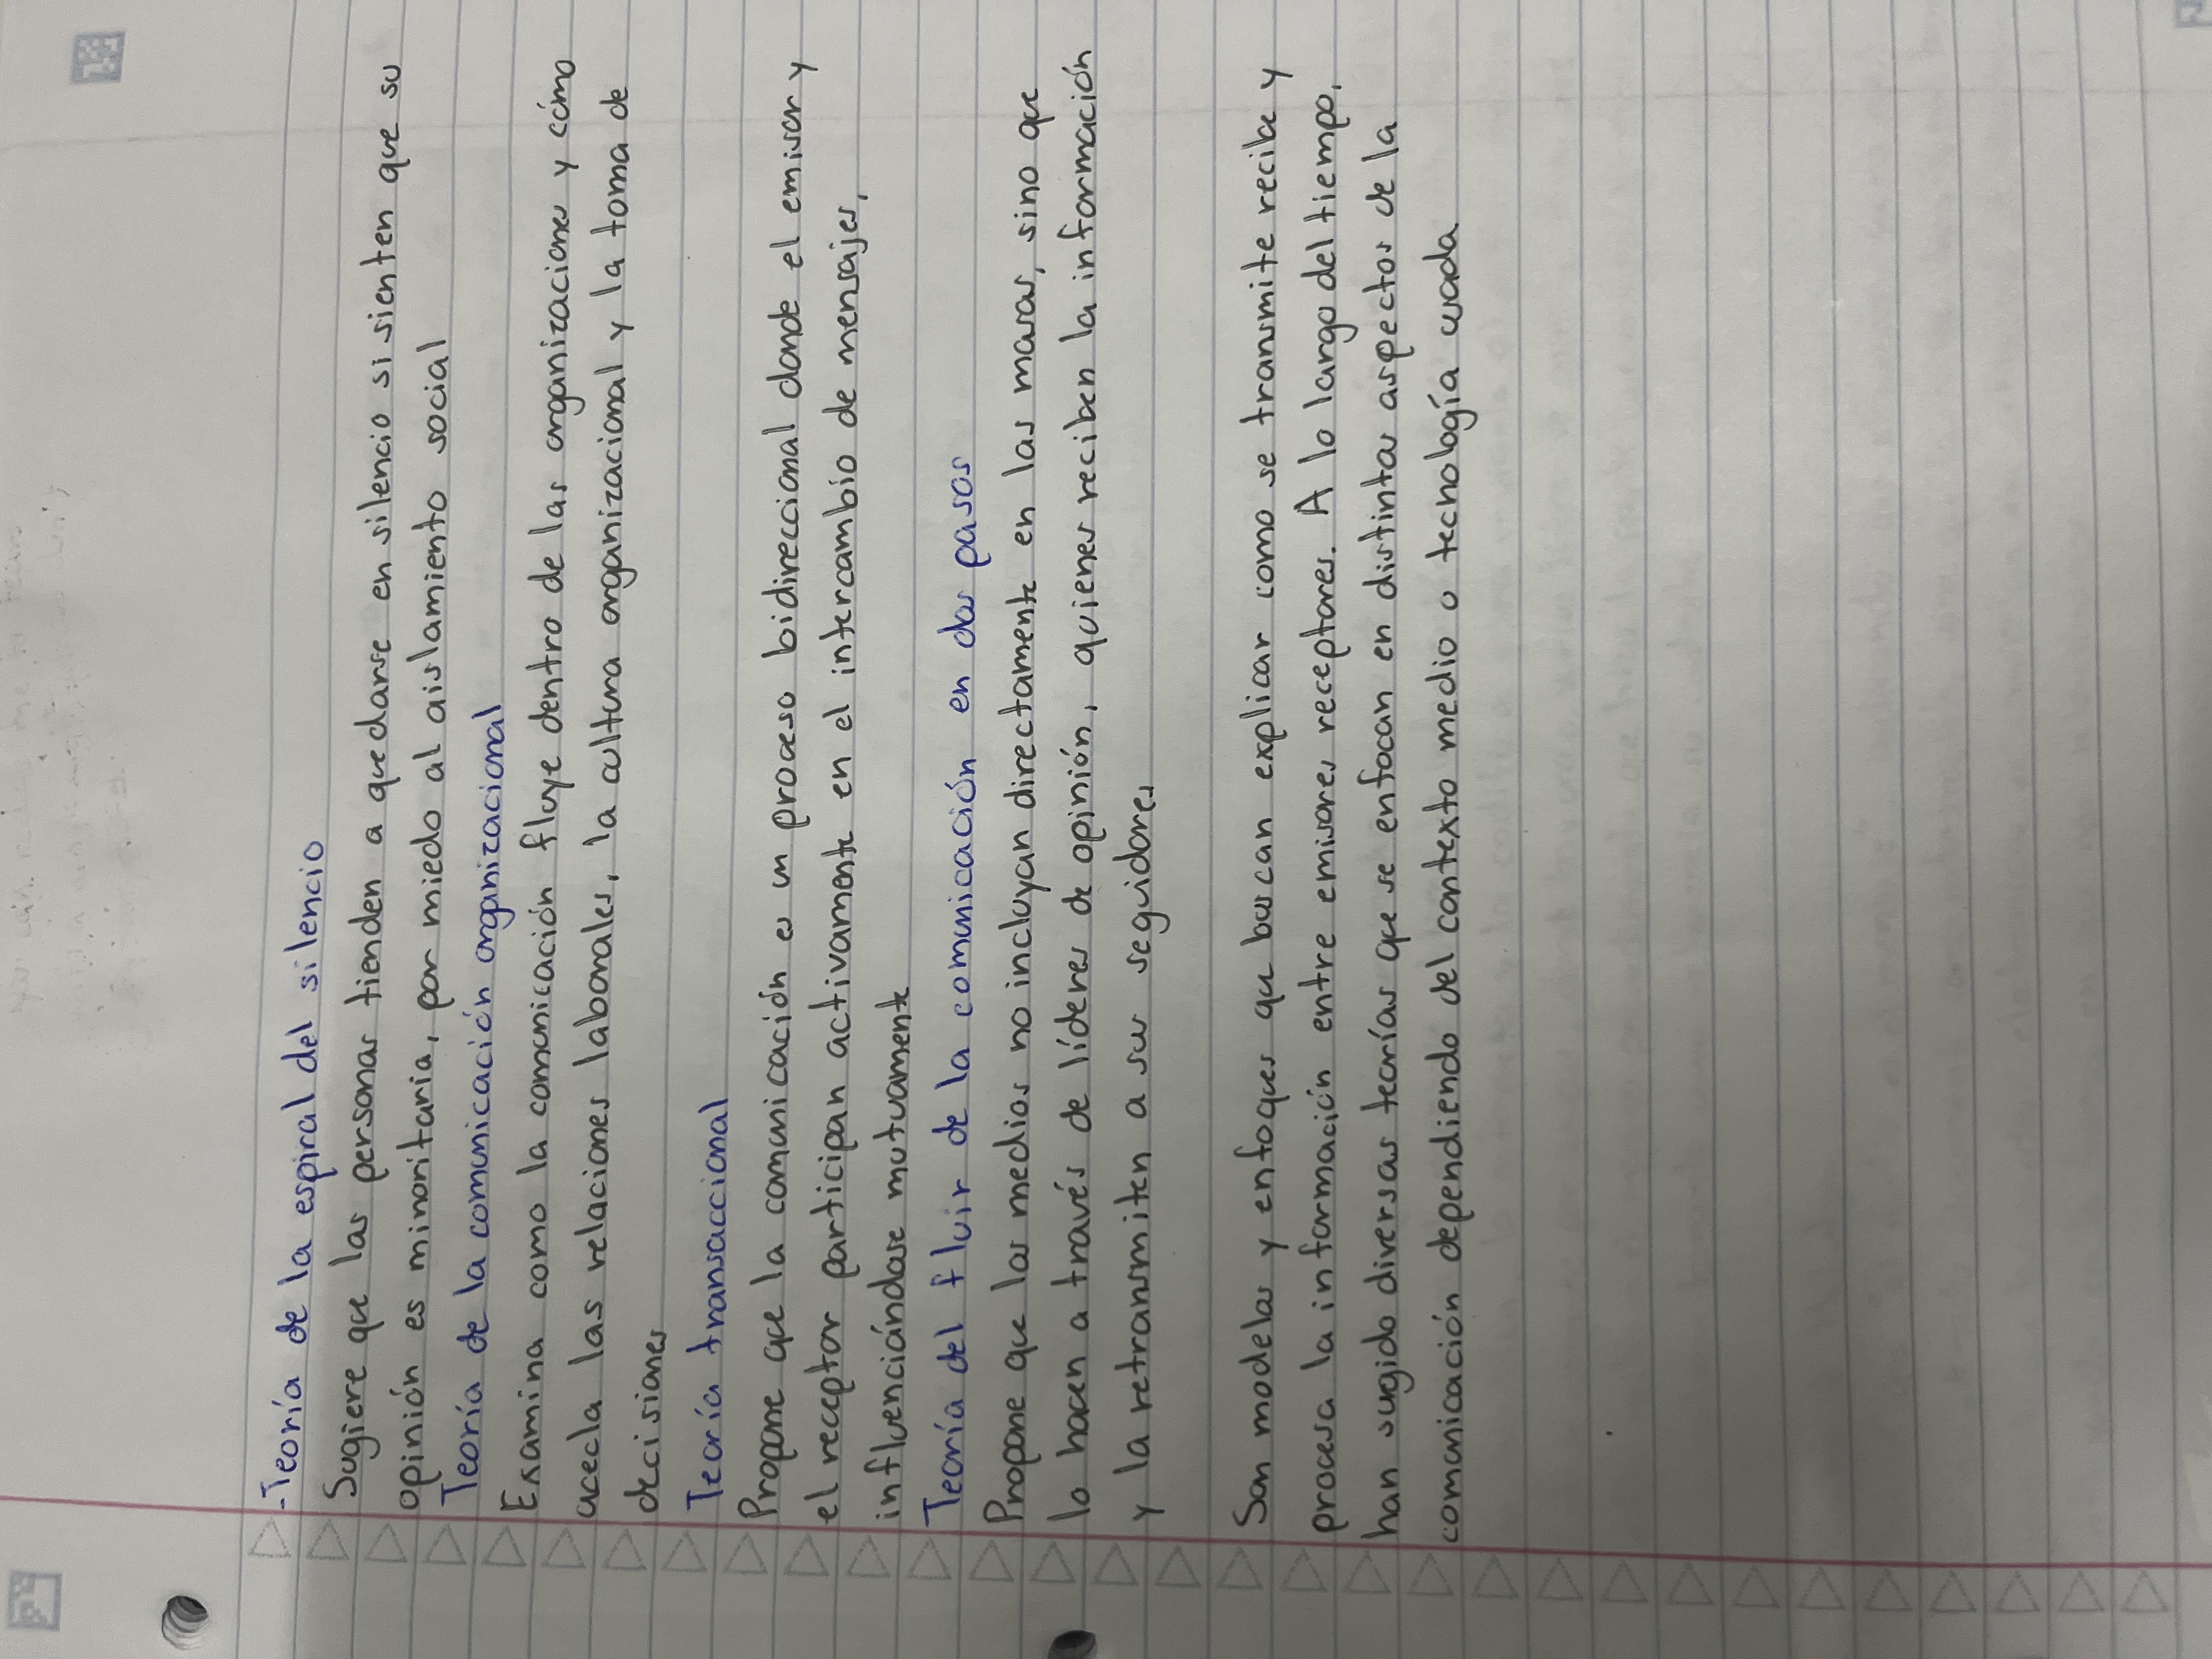 -Teoría de la espiral del silencio
Sugiere que las personas tienden a quedarse en silencio si sienten que su
opinión es minoritaria, por miedo al aislamiento social
Teoría de la comunicación organizacional
Examina como la comunicación fluye dentro de las organizaciones y cómo
acecla las relaciones laborales, la cultura organizacional y la toma de
decisiones
Teoría transaccional
Propone que la comunicación es un proceso bidireccional donde el emisor y
el receptor participan activamente en el intercambio de mensajes,
influenciándose mutuamente
Teoría del fluir de la comunicación en dos pasos
Propone que los medios no incluyan directamente en las masas, sino que
lo hacen a través de líderes de opinión, quienes reciben la información
y la retransmiten a sus seguidores
Son modelos y enfoques que buscan explicar como se transmite recibe y
procesa la información entre emisores receptores. A lo largo del tiempo,
han surgido diversas teorías que se enfocan en distintos aspectos de la
comunicación dependiendo del contexto medio o tecnología usada